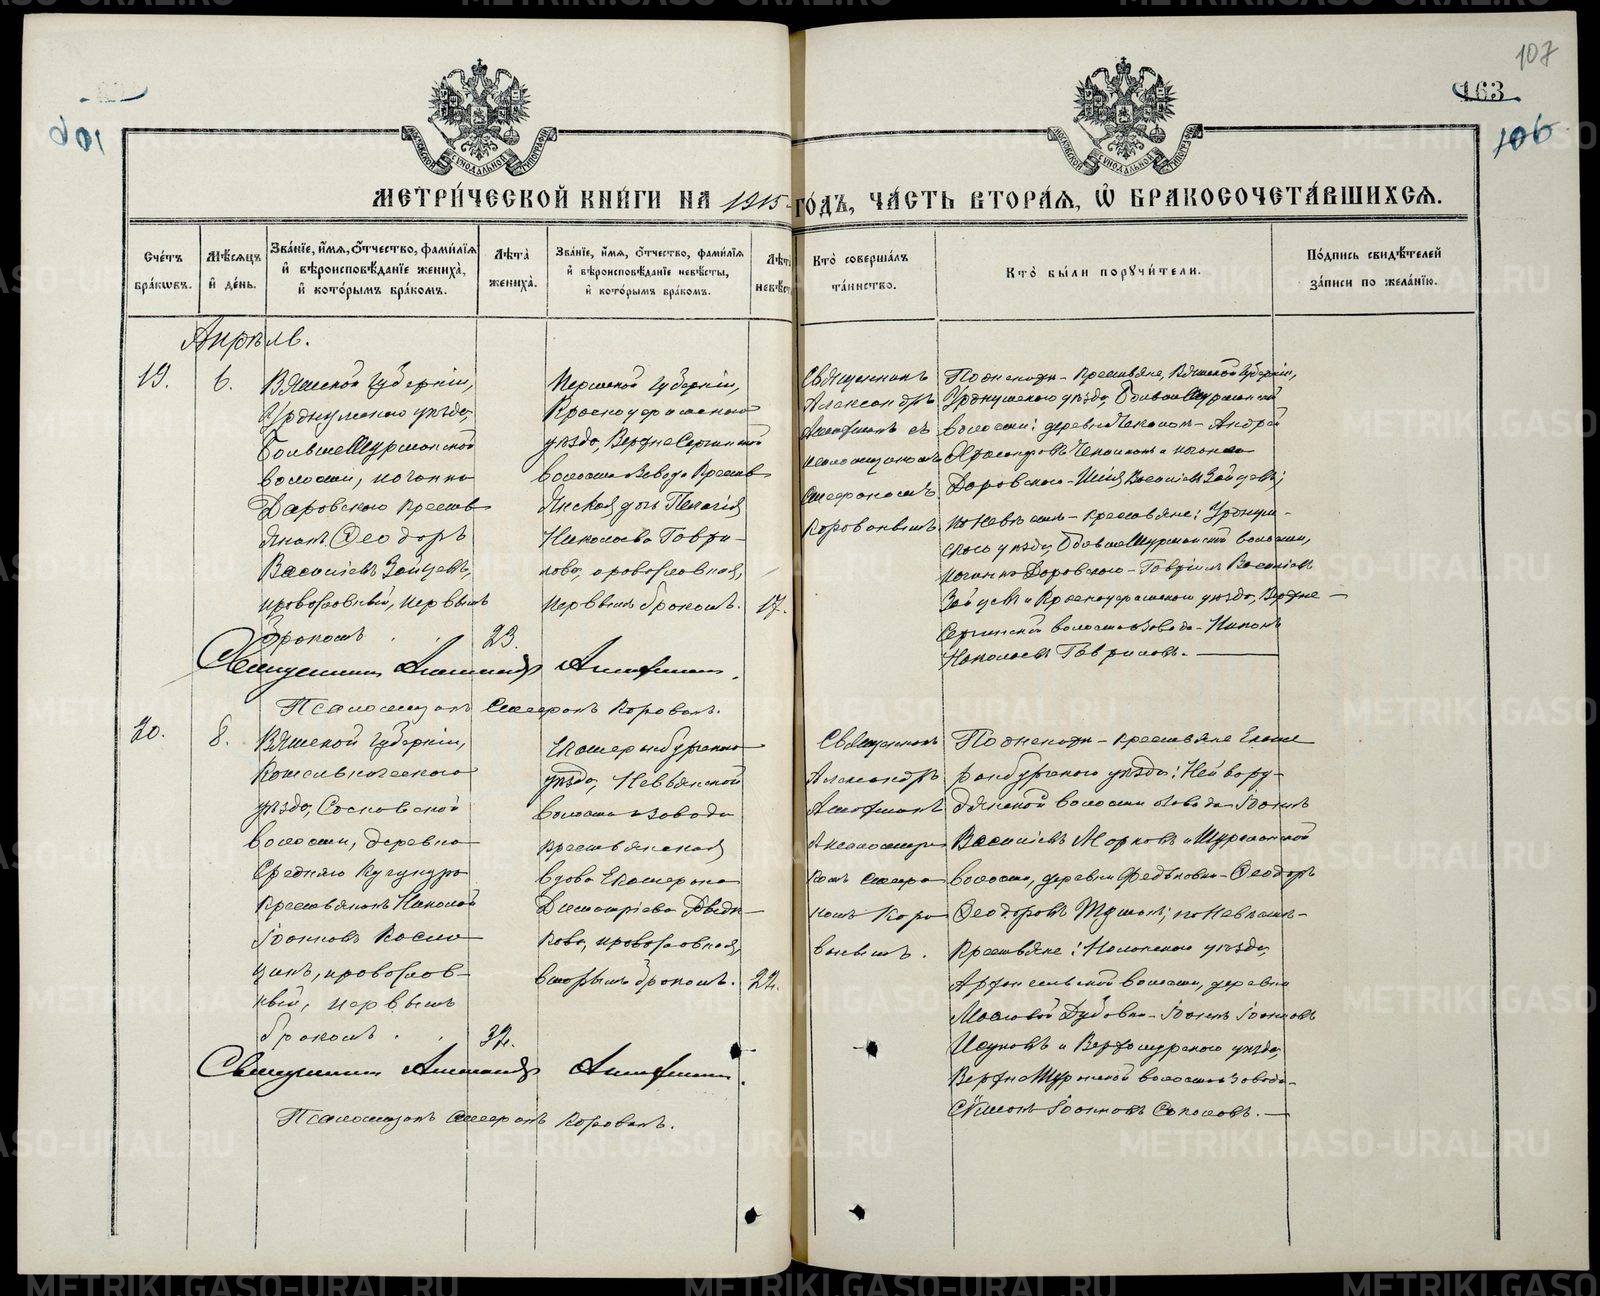 107
163
106
МЕТРИ́ЧЕСКОЙ КНИ́ГИ НА 1915 ГО́ДЪ, ЧА́СТЬ ВТОРА́Я, Ѽ БРАКОСОЧЕТА́ВШИХСЯ.
Сче́тъ бра́кωвъ.
Мѣ́сяцъ и҆ де́нь.
Зва́нїе, и҆́мя, ѻ҆́тчество, фами́лїя и҆ вѣроисповѣ́данїе жениха̀, и҆ кото́рымъ бра́комъ.
Лѣ́та жениха̀.
Зва́нїе, и҆́мя, ѻ҆́тчество, фами́лїя и҆ вѣроисповѣ́данїе невѣ́сты, и҆ кото́рымъ бра́комъ.
Лѣ́та невѣ́ст
Кто̀ соверша́лъ та́инство.
Кто̀ бы́ли порꙋчи́тели.
По́дпись свидѣ́телей за́писи по жела́нїю.
Апрѣль.
19.
6.
Вятской губерніи,
Уржумского уѣзда,
БольшеШурминской
волости, починка
Даровского кресть
янинъ Ѳеодоръ
Васильевъ Зайцевъ,
православный, первымъ
бракомъ
23.
Пермской губерніи,
Красноуфимского
уѣзда, Верхне Сергинской
волости и завода кресть
янская дочь Пелагія
Николаева Гаври-
лова, православная,
первымъ бракомъ.
17.
Священникъ
Александръ
съ
псаломщикомъ
Стефаномъ
Короваевымъ
По женихѣ - крестьяне, Вятской губерніи,
Уржумского уѣзда, БольшеШурминской
волости: деревни - Андрей
и починка
Даровского - Илія Васильевъ Зайцевъ;
по невѣстѣ - крестьяне: Уржум-
ского уѣзда, БольшеШурминской волости,
починка Даровского - Гавріилъ Васильевъ
Зайцевъ и Красноуфимского уѣзда, Верхне -
Сергинской волости и завода - Никонъ
Николаевъ Гавриловъ.
Священникъ Александръ
Псаломщикъ Стефанъ Короваевъ.
20.
8.
Вятской губерніи,
Котельнического
уѣзда, Сосновской
волости, деревни
Средняго
крестьянинъ Николай
Іоанновъ
православ-
ный, первымъ
бракомъ.
32.
Екатеринбургского
уѣзда, Невьянской
волости и завода
крестьянская
вдова Екатерина
Димитріева
православная,
вторымъ бракомъ.
22.
Священникъ
Александръ
съ псаломщи
комъ Стефа
номъ Коро
ваевымъ.
По женихѣ - крестьяне Екате
ринбургского уѣзда: Нейворуд-
дянской волости и завода - Іоаннъ
Васильевъ Марковъ и Шуралинской
волости, деревни Федьковки - Ѳеодоръ
Ѳеодоровъ; по невѣстѣ -
крестьяне: уѣзда,
Архангельской волости, деревни
Дубовки - Іоаннъ Іоанновъ
и Верхотурского уѣзда,
ВерхнеТуринской волости и завода -
Сумеонъ Іоанновъ Соколовъ.
Священникъ Александръ
Псаломщикъ Стефанъ Короваевъ.
METRIKI.GASO-URAL.RU